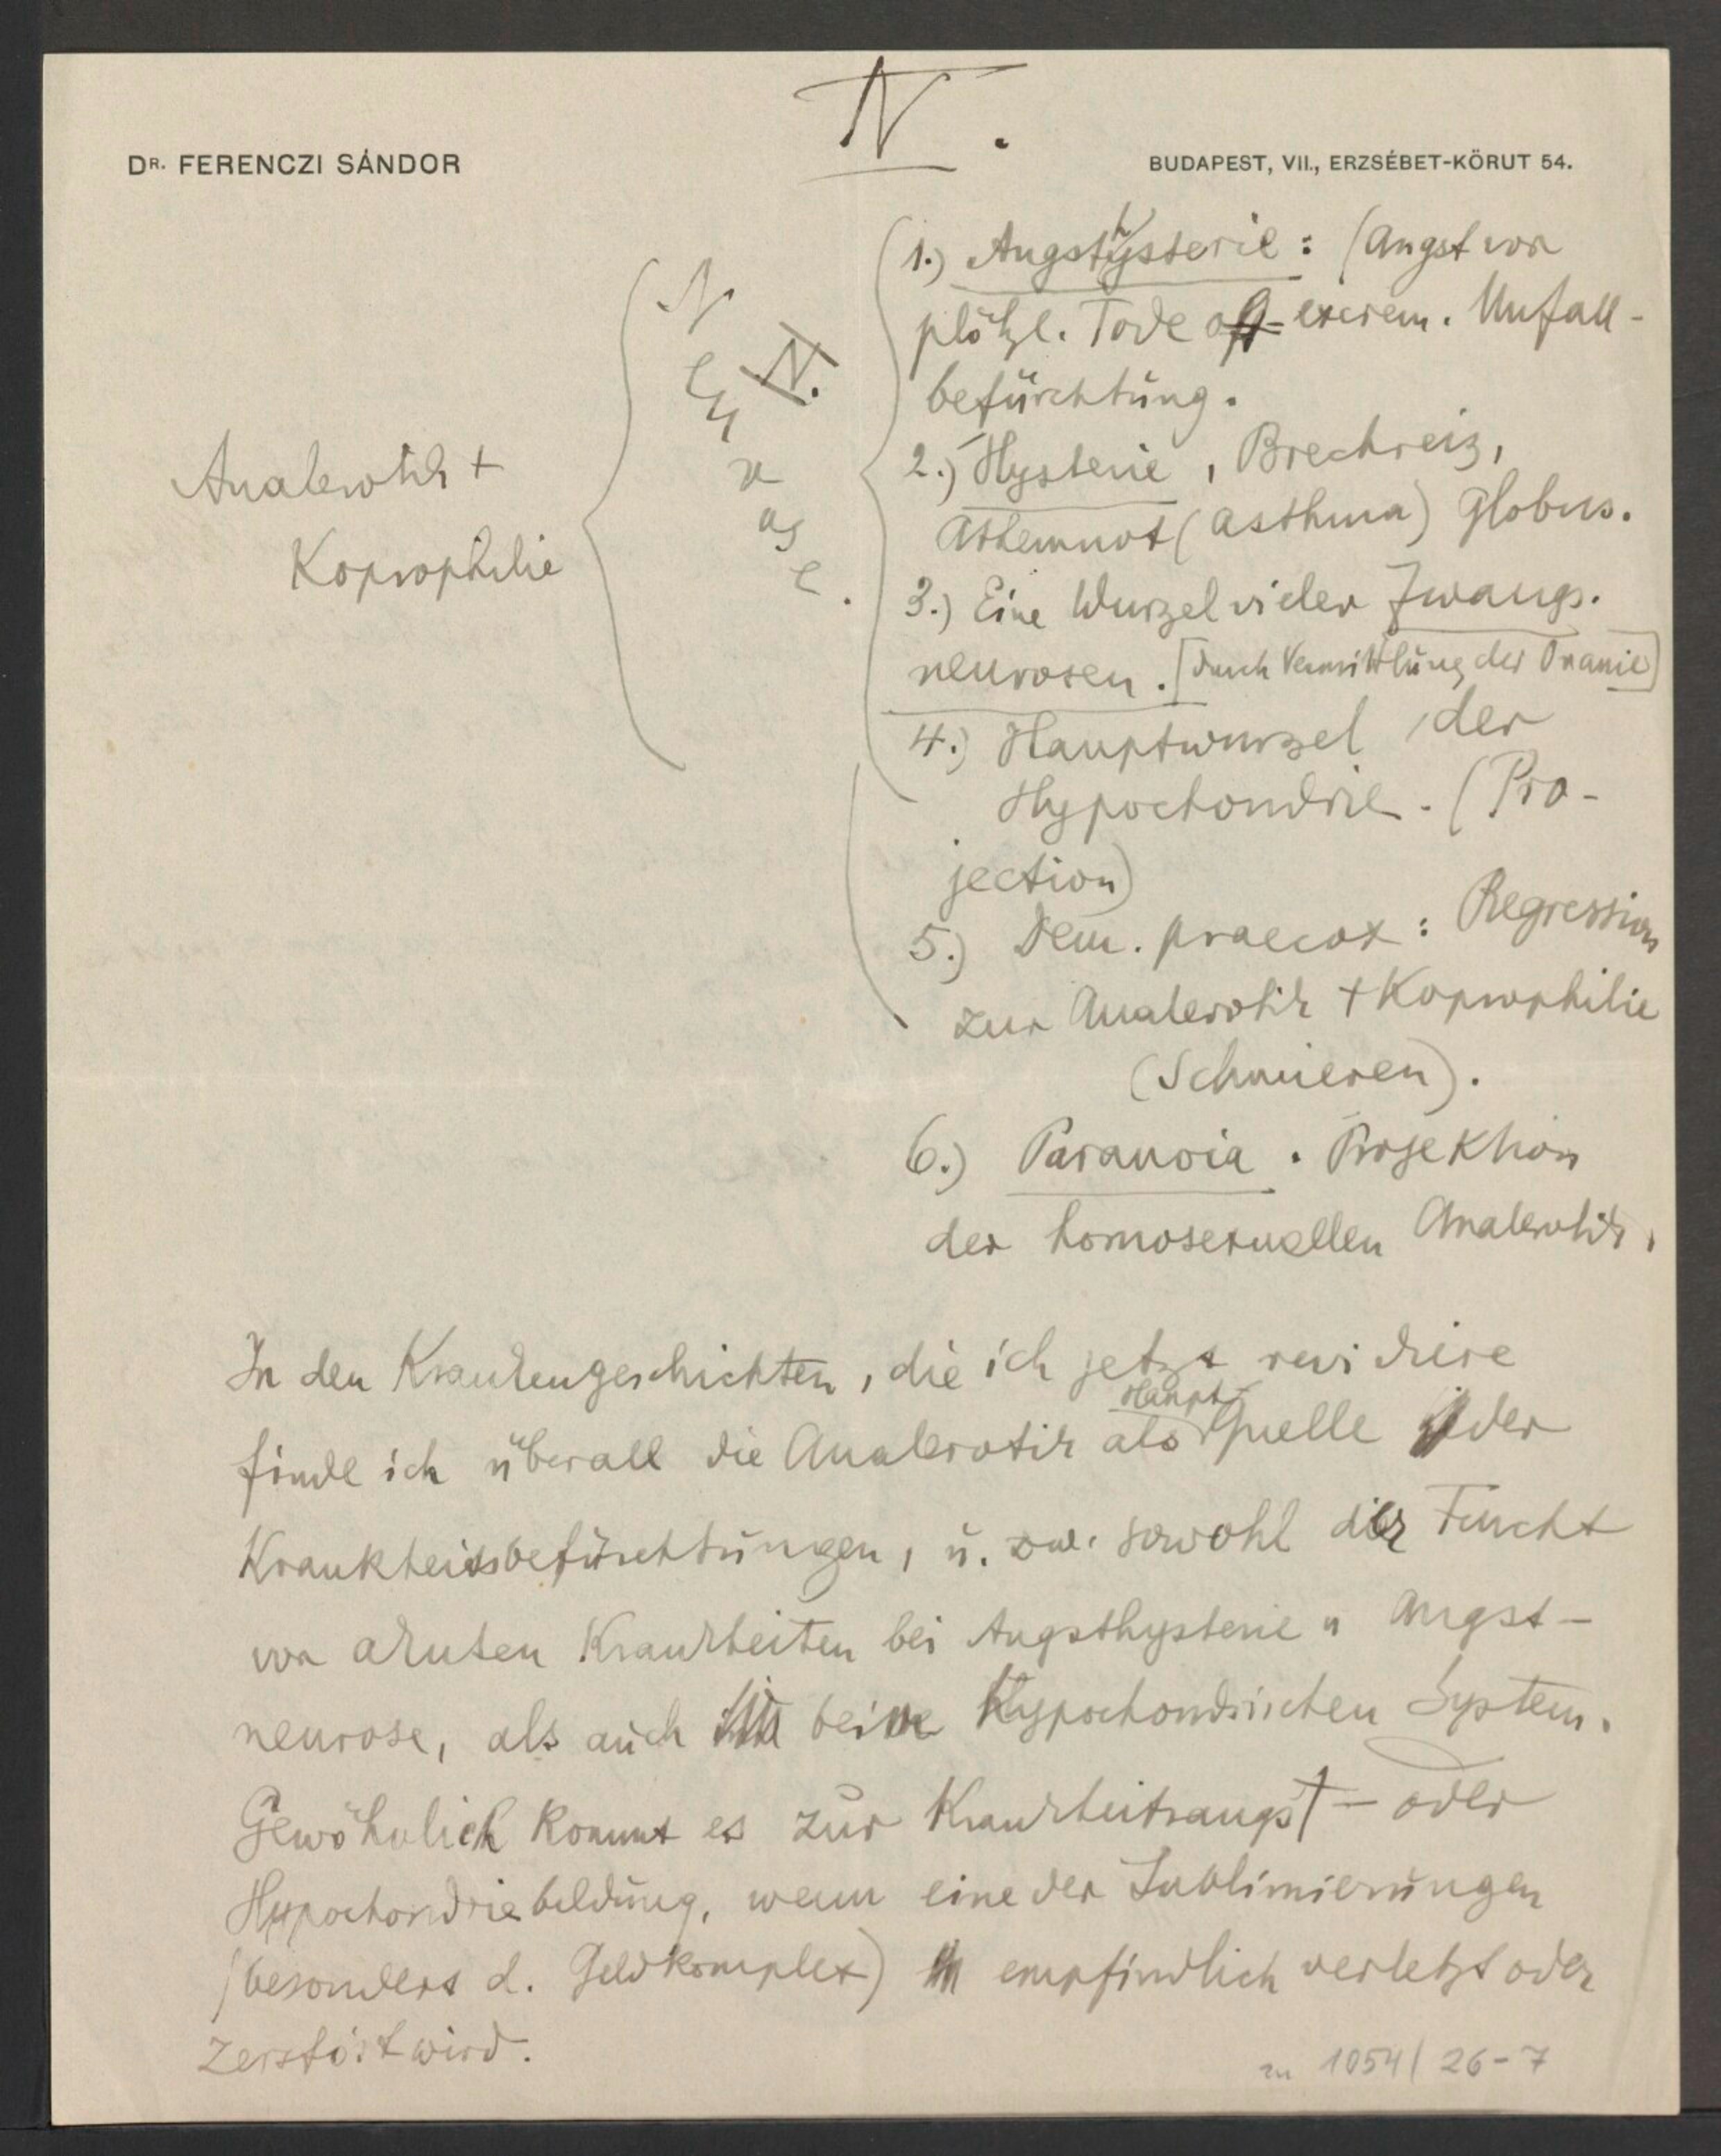 N.
DR. FERENCZI SÁNDOR
BUDAPEST, VII., ERZSÉBET-KÖRUT 54.
Analerotik +
Koprophilie
Neurose.
N.
1.) Angsthysterie: (Angst vor
plötzl. Tode excrem. Unfall-
befürchtung.
2.) Hysterie, Brechreiz,
Athemnot (Asthma) Globus.
3.) Eine Wurzel vieler Zwangs-
neurosen. [durch Vermittlung der Onanie]
4.) Hauptwurzel der
Hypochondrie. (Pro-
jection)
5.) Dem. praecox: Regression
zur Analerotik + Koprophilie
(Schmieren).
6.) Paranoia. Projektion
der homosexuellen Analerotik.
In den Krankengeschichten, die ich jetzt revidiere
finde ich überall die Analerotik als Hauptquelle der
Krankheitsbefürchtungen, u. zw. sowohl der Furcht
vor akuten Krankheiten bei Angsthysterie u Angst-
neurose, als auch beim Hypochondrischen System.
Gewöhnlich kommt es zur Krankheitsangst- oder
Hypochondriebildung, wenn eine der Sublimierungen
(besonders d. Geldkomplex) empfindlich verletzt oder
zerstört wird.
zu 1054/26-7